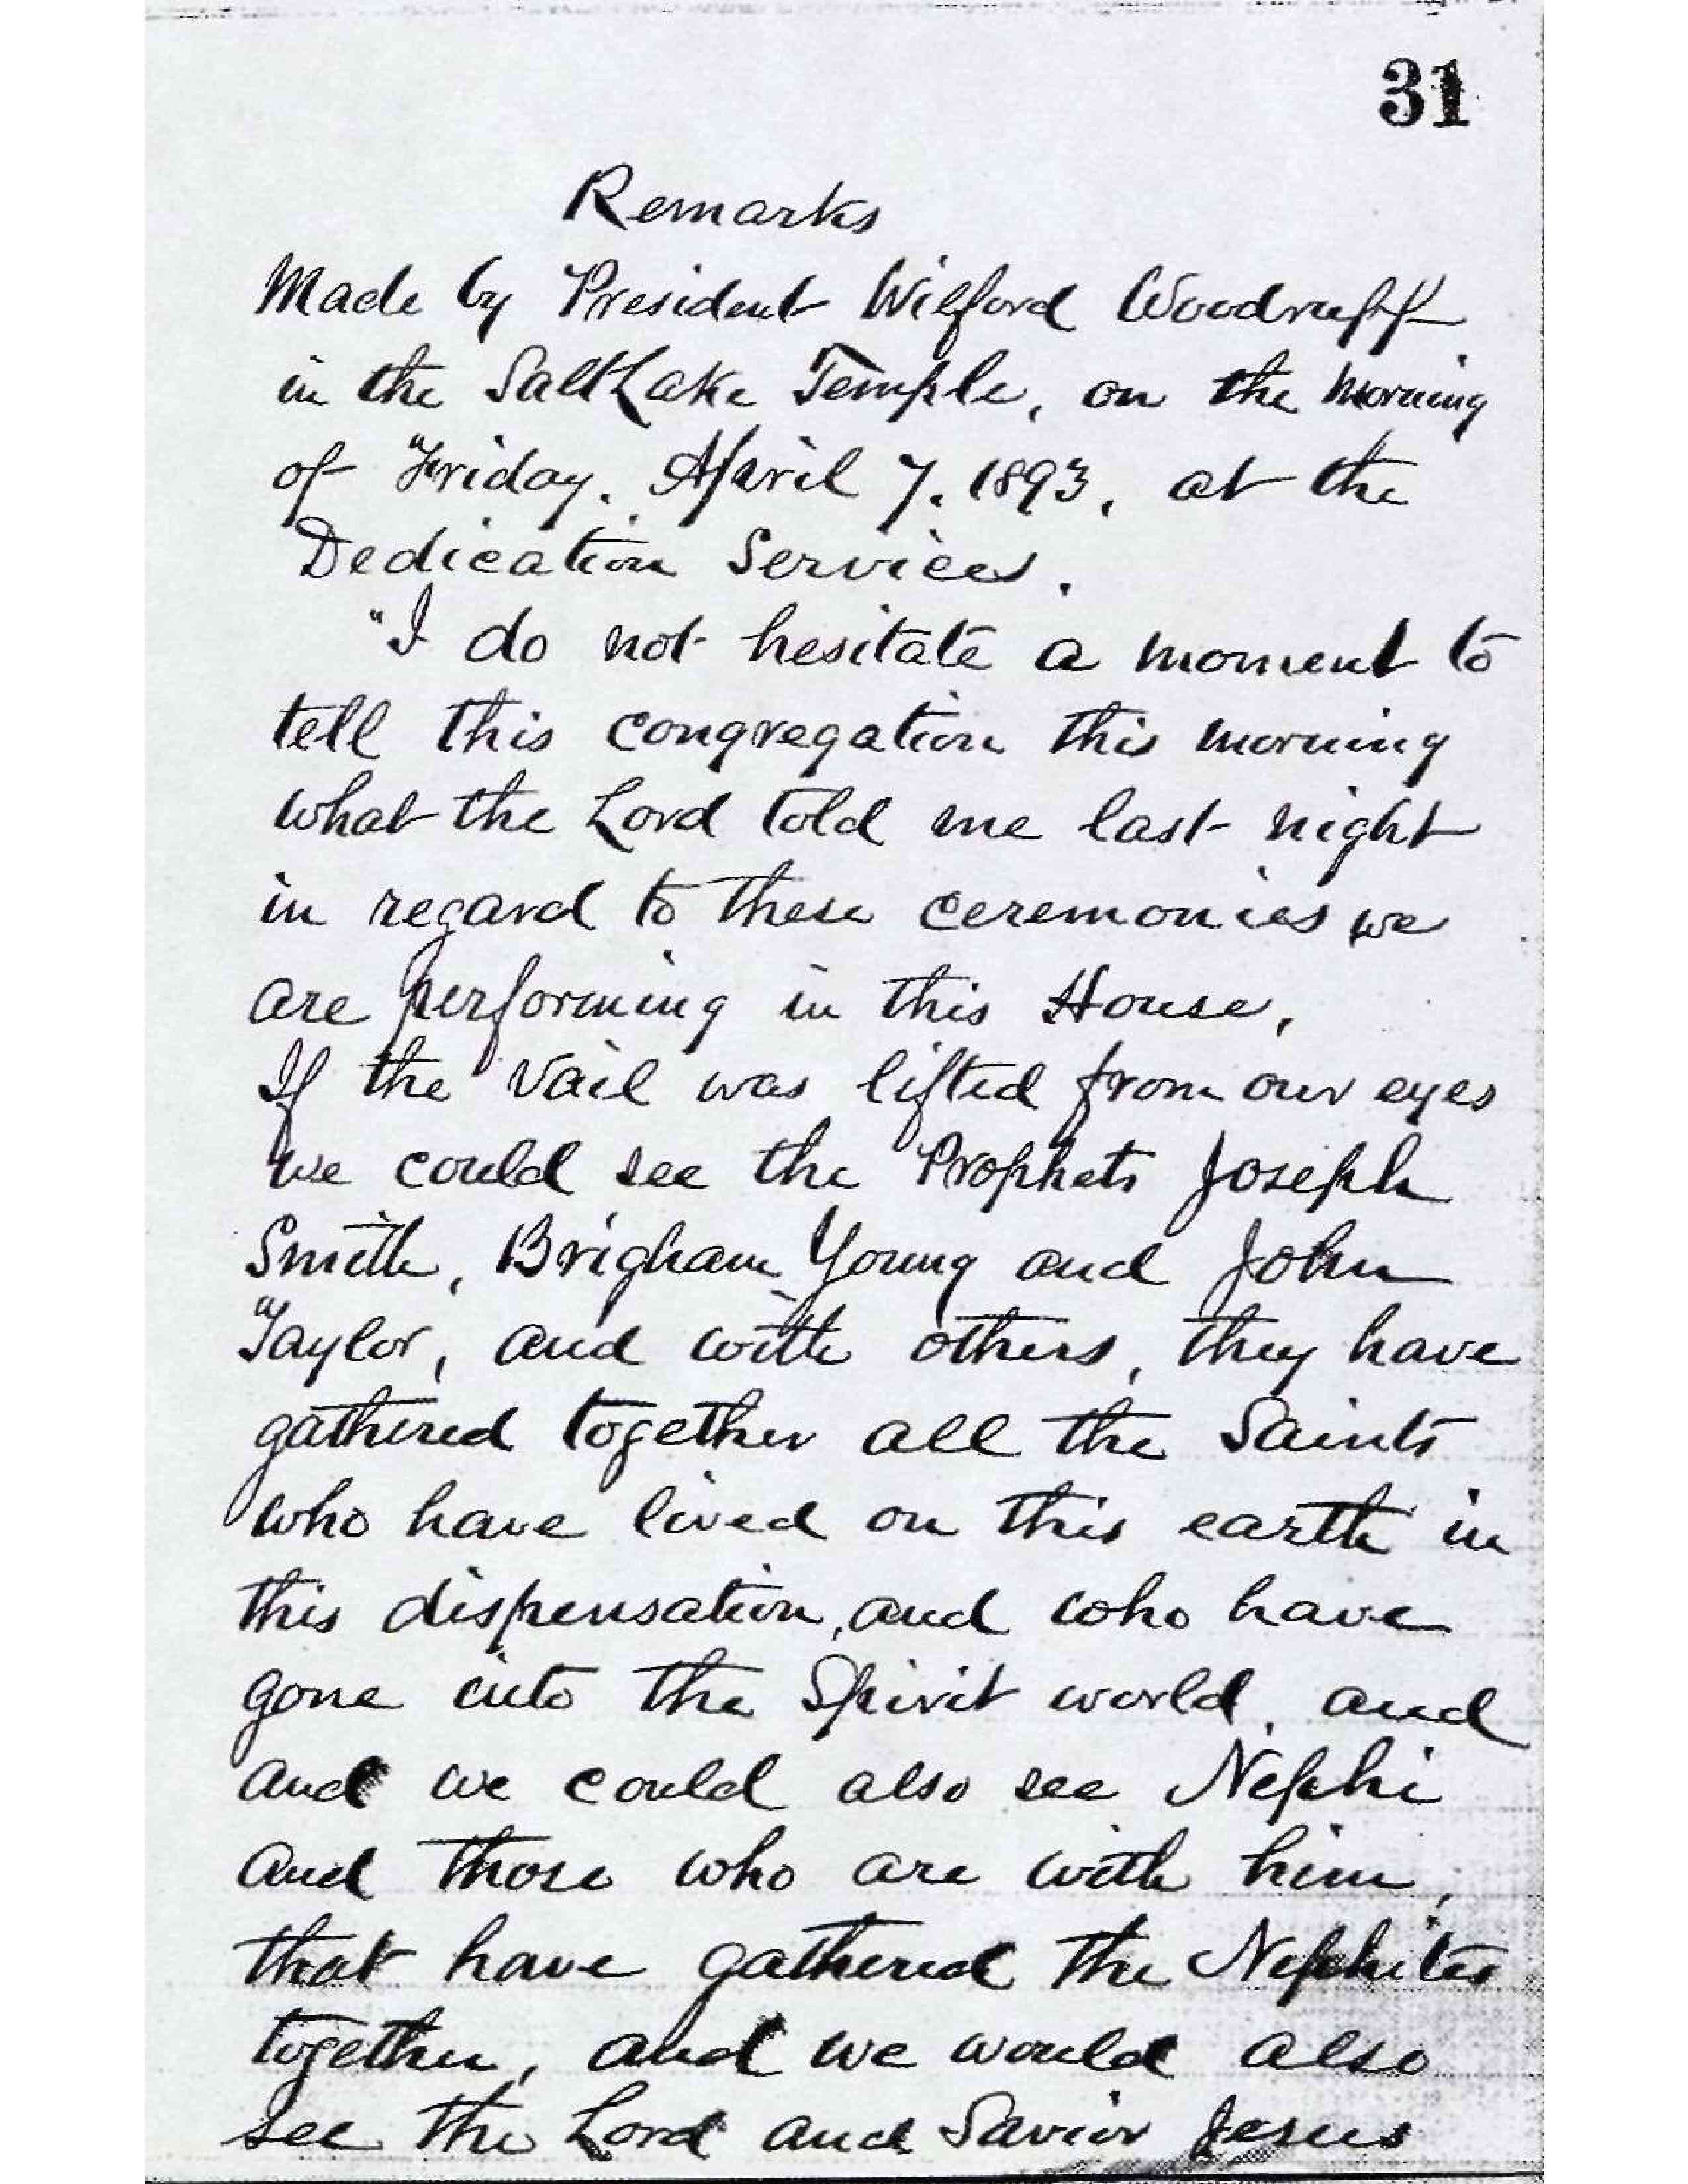 31
Remarks
Made by President Wilford Woodruff
in the Salt Lake Temple, on the Morning
of Friday. April 7. 1893, at the
Dedication Services.
"I do not hesitate a moment to
tell this congregation this morning
what the Lord told me last night
in regard to these ceremonies we
are performing in this House,
If the Vail was lifted from our eyes
we could see the Prophets Joseph
Smith, Brigham Young and John
Taylor, and with others, they have
gathered together all the Saints
who have lived on this earth in
this dispensation, and who have
gone into the Spirit world, and
and we could also see Nephi
and those who are with him,
that have gathered the Nephites
together, and we would also
see the Lord and Savior Jesus